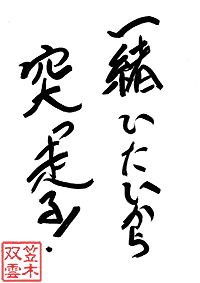 一緒いたいから
突っ走る!
笠木
双雲